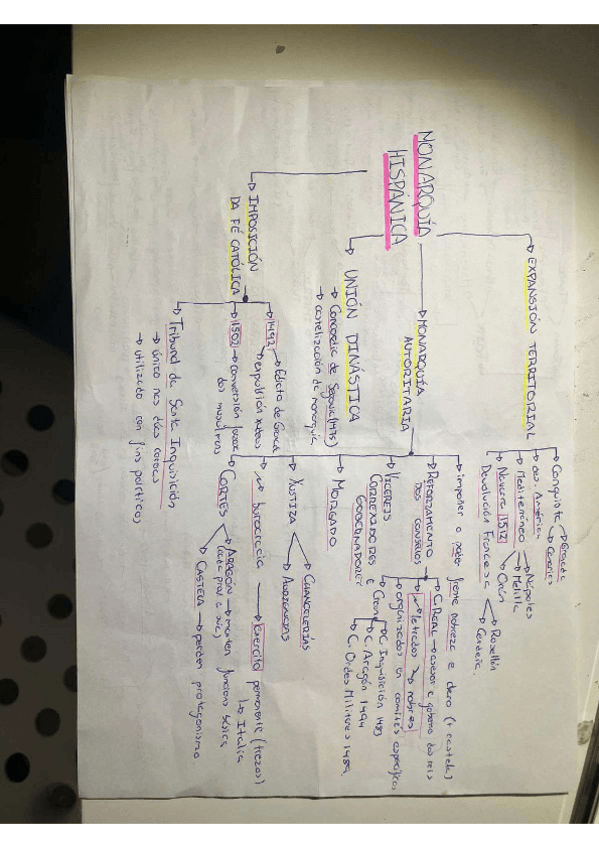 MONARQUÍA
HISPÁNICA
EXPANSIÓN TERRITORIAL
Conquista
Granada
Canarias
des. América
Mediterráneo
Nápoles
Melilla
Orán
Navarra 1512
Devolución Francesa
Rosellón
Cerdeña
MONARQUÍA
AUTORITARIA
impoñer o poder frente nobreza e clero (+ castela)
REFORZAMENTO
DOS CONSELLOS
C.REAL → asesor e goberno dos reis
letrados nobres
organizados en comités específicos
Crean
C. Inquisición 1483
C. Aragón 1494
C. Ordes Militares 1489
VICEREIS
CORREXIDORES E
GOBERNADORES
MORGADO
XUSTIZA
CHANCELERÍAS
AUDIENCIAS
burocracia
exército permanente (terzos)
Italia
CORTES
ARAGÓN → manten funcións
CASTELA → perden protagonismo
UNIÓN DINÁSTICA
→ Concordia de Segovia (1475)
→ castelización da monarquía
IMPOSICIÓN
DA FÉ CATÓLICA
1492
Edicto de Granada
expulsión xudeus
1502 → conversión forzosa
dos musulmáns
Tribunal da Santa Inquisición
→ único nas dúas coroas
→ utilizado con fins políticos